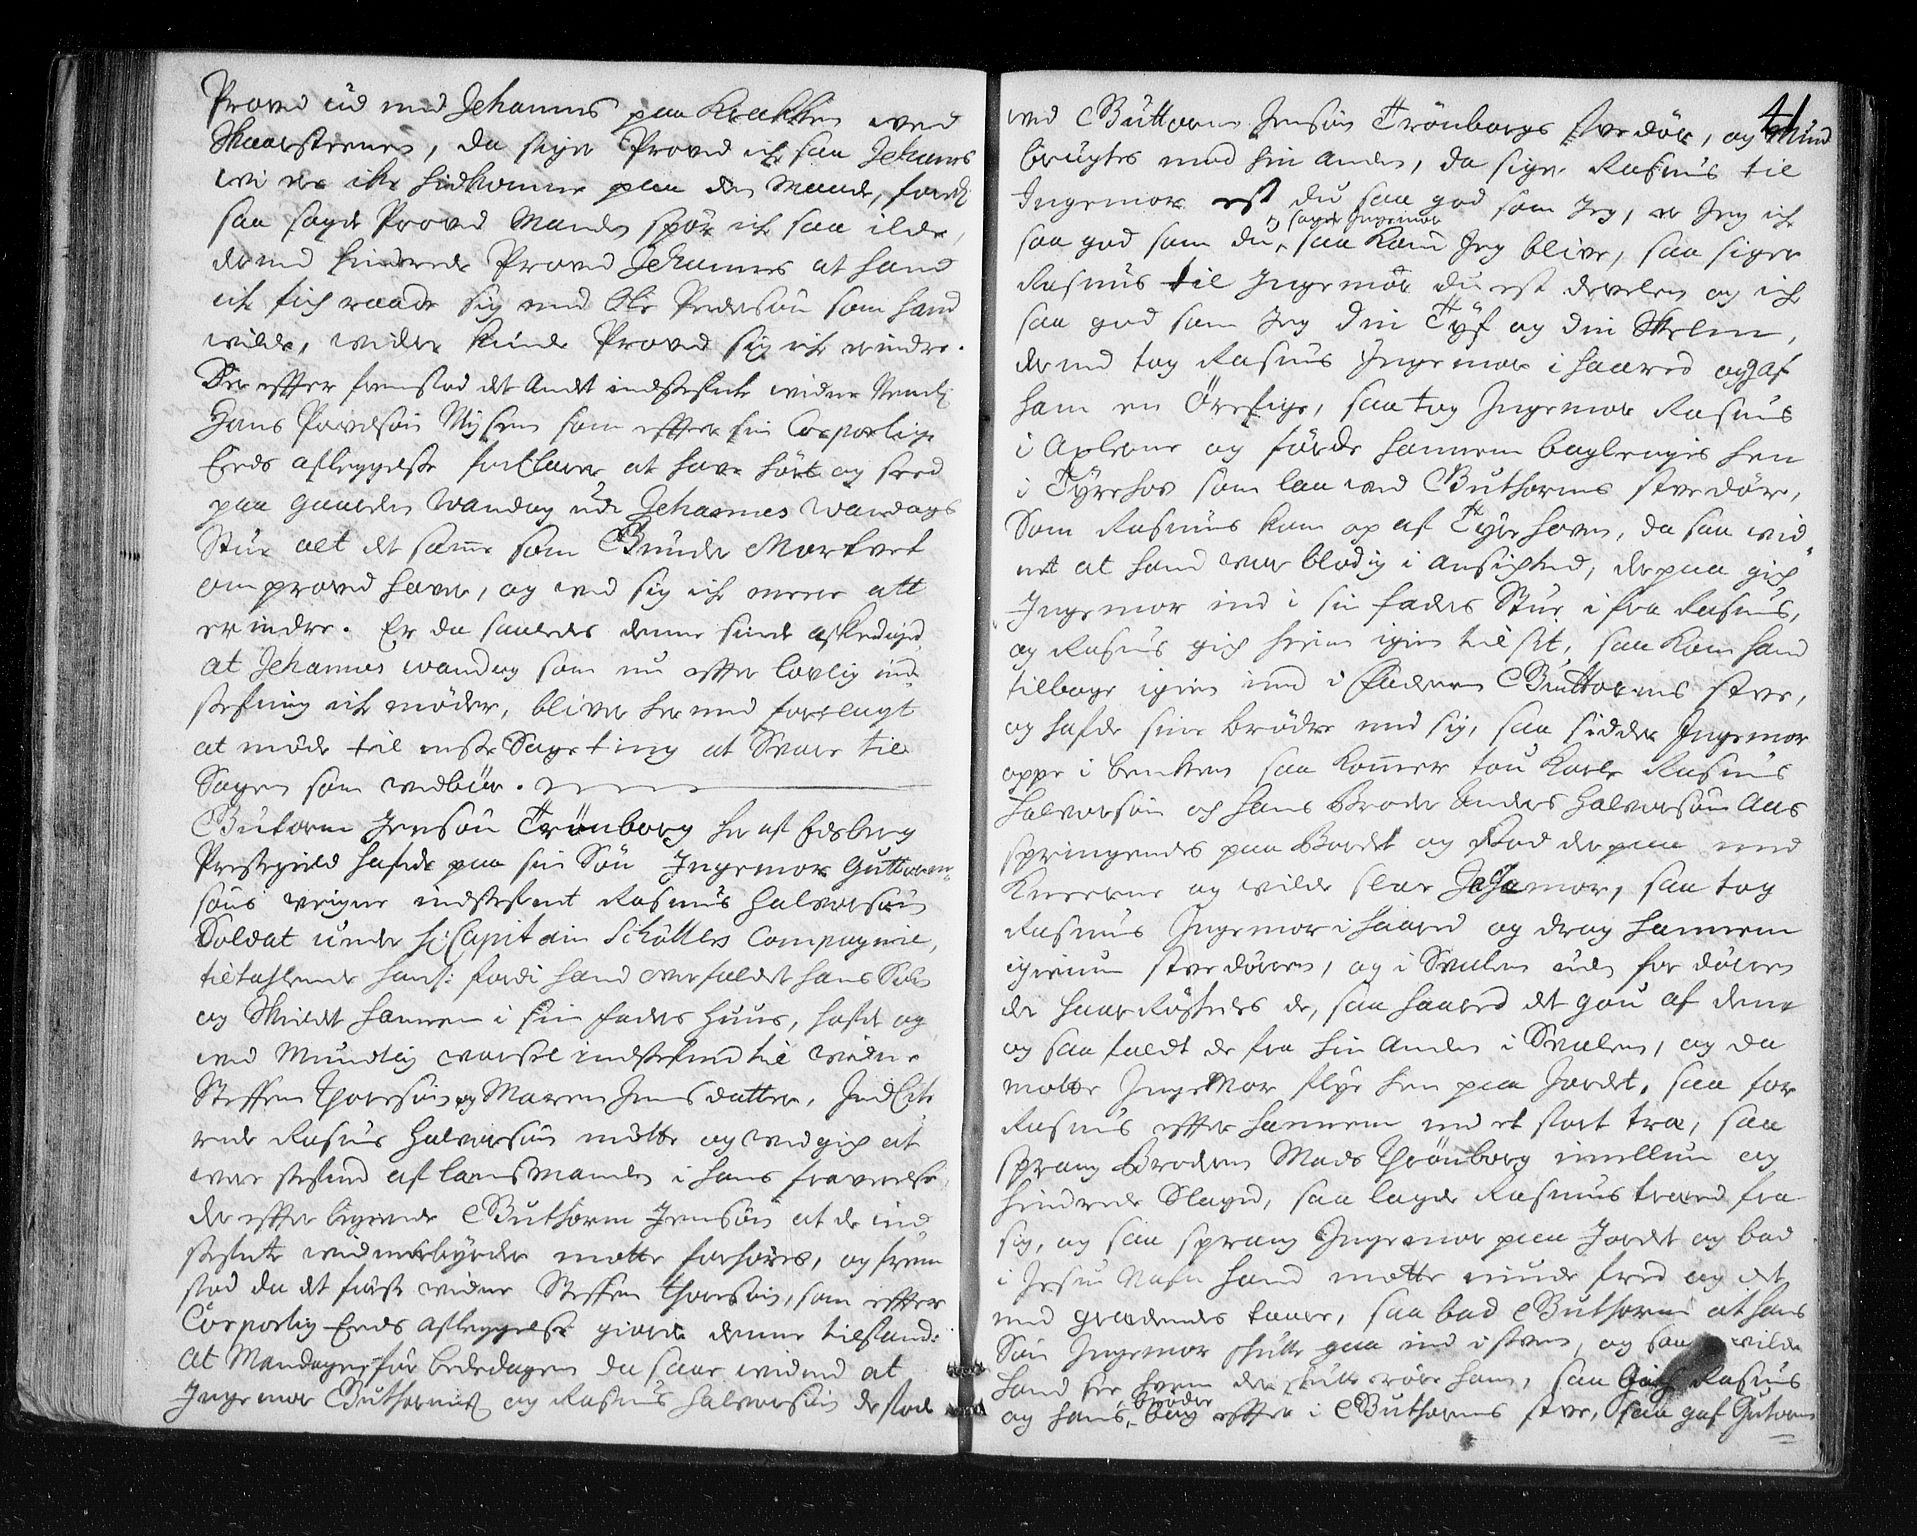 Proved ud med Johannes paa Krakken ved
Skaarsteenen, da siger Proved iche saa Johannes
wi er iche hidkomme paa den Maade, fordi
saa sagde Proved Manden spør iche saa ilde,
dermed hindrede Proved Johannes at hand
iche fich raade sig med Ole Pedersøn som hand
wilde, widere kunde Proved sig iche erindre.
Der effter fremstod det Andet indstefnte widne Nemblig
Hans Povelsøn som effter sin Corporlige
Eeds aflæggelse forklarer at have hørt og seed
paa gaarden Wandag udi Johannes Wandags
Stue alt det samme som Gunder Morket
omproved haver, og wed sig iche meere att
erindre. Er da saaledes denne sinde afskediget,
at Johannes Wandag som nu effter lovlig ind
stefning iche møder, bliver hermed forelagt
at møde til neste Sageting at Svare til
Sagen som wedbør.
Gutorm Jensøn Trønborg her af Eidsberg
Prestegield hafde paa sin Søn Ingemor Guttorm-
søns veigne indstefnt Rasmus Halvorsøn
Soldat under Hr Capitain Schøllers Compagnie,
tiltalende ham: fordi hand overfaldet hans Søn
og Skieldet hannem i sin faders Huus, hafde og
med Mundtlig warsel indstefned til widne
Steffen Thoresøn og Maren Jensdatter. Indcite
rede Rasmus Halvorsøn møtte og wedgich at
were stefned af lænsmanden i hans fraverelse,
der effter begierede Guthorm Jensøn at de ind
stefnte widnesbyrder motte forhøres, og frem
stod da det første widne Steffen Thoresøn, som effter
Corporlig Eeds aflæggelse giorde denne tilstand:
At Mandagen før bededagen da saae widned at
Ingemor Guthormsøn og Rasmus Halvorsøn de stod
41
wed Guttorm Jensøn Trønborgs stuedør, og Mund
brugtes med hin anden, da siger Rasmus til
Ingemor est du saa god som Jeg, er Jeg iche
saa god som du, sagde Ingemor saa kand Jeg blive, saa siger
Rasmus til Ingemor du est dievelen og iche
saa god som Jeg din Tyf og din Skelm,
dermed tog Rasmus Ingemor i haared og gaf
ham en Ørefige, saa tog Ingemor Rasmus
i Axlerne og førde hannem baglengis hen
i Tyrehov som laa wed Guthorms stuedør,
Som Rasmus kom op af Tyrehoven, da saa wid
net at hand war blodig i ansigted, derpaa gich
Ingemor ind i sin faders Stue ifra Rasmus,
og Rasmus gich heim igien til sit, saa kom hand
tilbage igien ind i Faderen Guttorms stue,
og hafde sine brødre med sig, saa sidder Ingemor
oppe i benken saa kommer tou Karle Rasmus
Halvorsøn og hans Broder Anders Halvorsøn Aas
springendes paa Bordet og stod derpaa med
Kneerne og wilde slae Ingemor, saa tog
Rasmus Ingemor i haared og drog hannem
igienum stuedøren, og i Svalen uden for døren
de haarrøstedes de, saa haared det gou af dem
og saa faldt de fra hin anden i Svalen, og da
motte Ingemor flye hen paa Jordet, saa for
Rasmus effter hannem med et stort træ, saa
sprang Broderen Mads Thrønborg imellum og
hindrede Slaged, saa lagde Rasmus træed fra
sig, og saa sprang Ingemor paa Jordet og bad
i Jesu Nafn hand motte niude fred og det
med grædendes taare, saa bad Guthorm at hans
Søn Ingemor skulle gaa ind i stuen, og saa wilde
hand see hvem der skulle røre ham, saa Gich Rasmus
og hans broder effter i Guthorms stue, saa gaf Gutorm